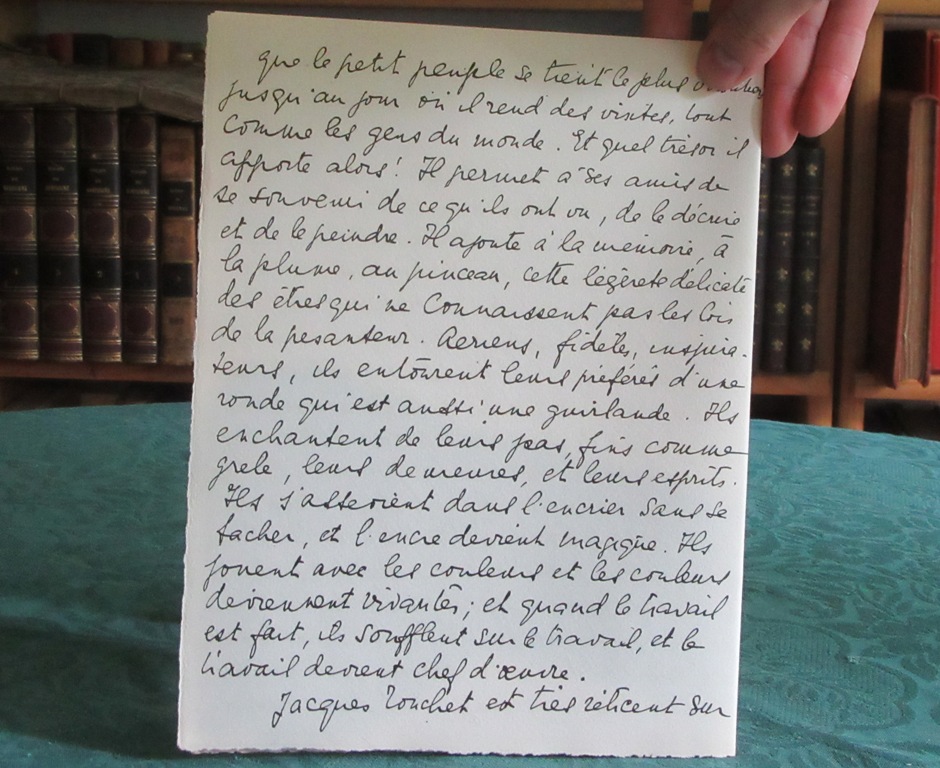 que le petit peuple se tient le plus
jusqu'au jour où il rend des visites, tout
comme les gens du monde. Et quel trésor il
apporte alors! Il permet à ses amis de
se souvenir de ce qu'ils ont vu, de le décrire
et de le peindre. Il ajoute à la mémoire, à
la plume, au pinceau, cette légèreté délicate
des êtres qui ne connaissent pas les lois
de la pesanteur. Aeriens, fidèles, inspira-
teurs, ils entourent leurs préférés d'une
ronde qui est aussi une guirlande. Ils
enchantent de leurs pas, fins comme
grele, leurs demeures, et leurs esprits.
Ils s'asseoient dans l'encrier sans se
tacher, et l'encre devient magique. Ils
jouent avec les couleurs et les couleurs
deviennent vivantes; et quand le travail
est fait, ils soufflent sur le travail, et le
travail devient chef d'œuvre.
Jacques Touchet est très réticent sur